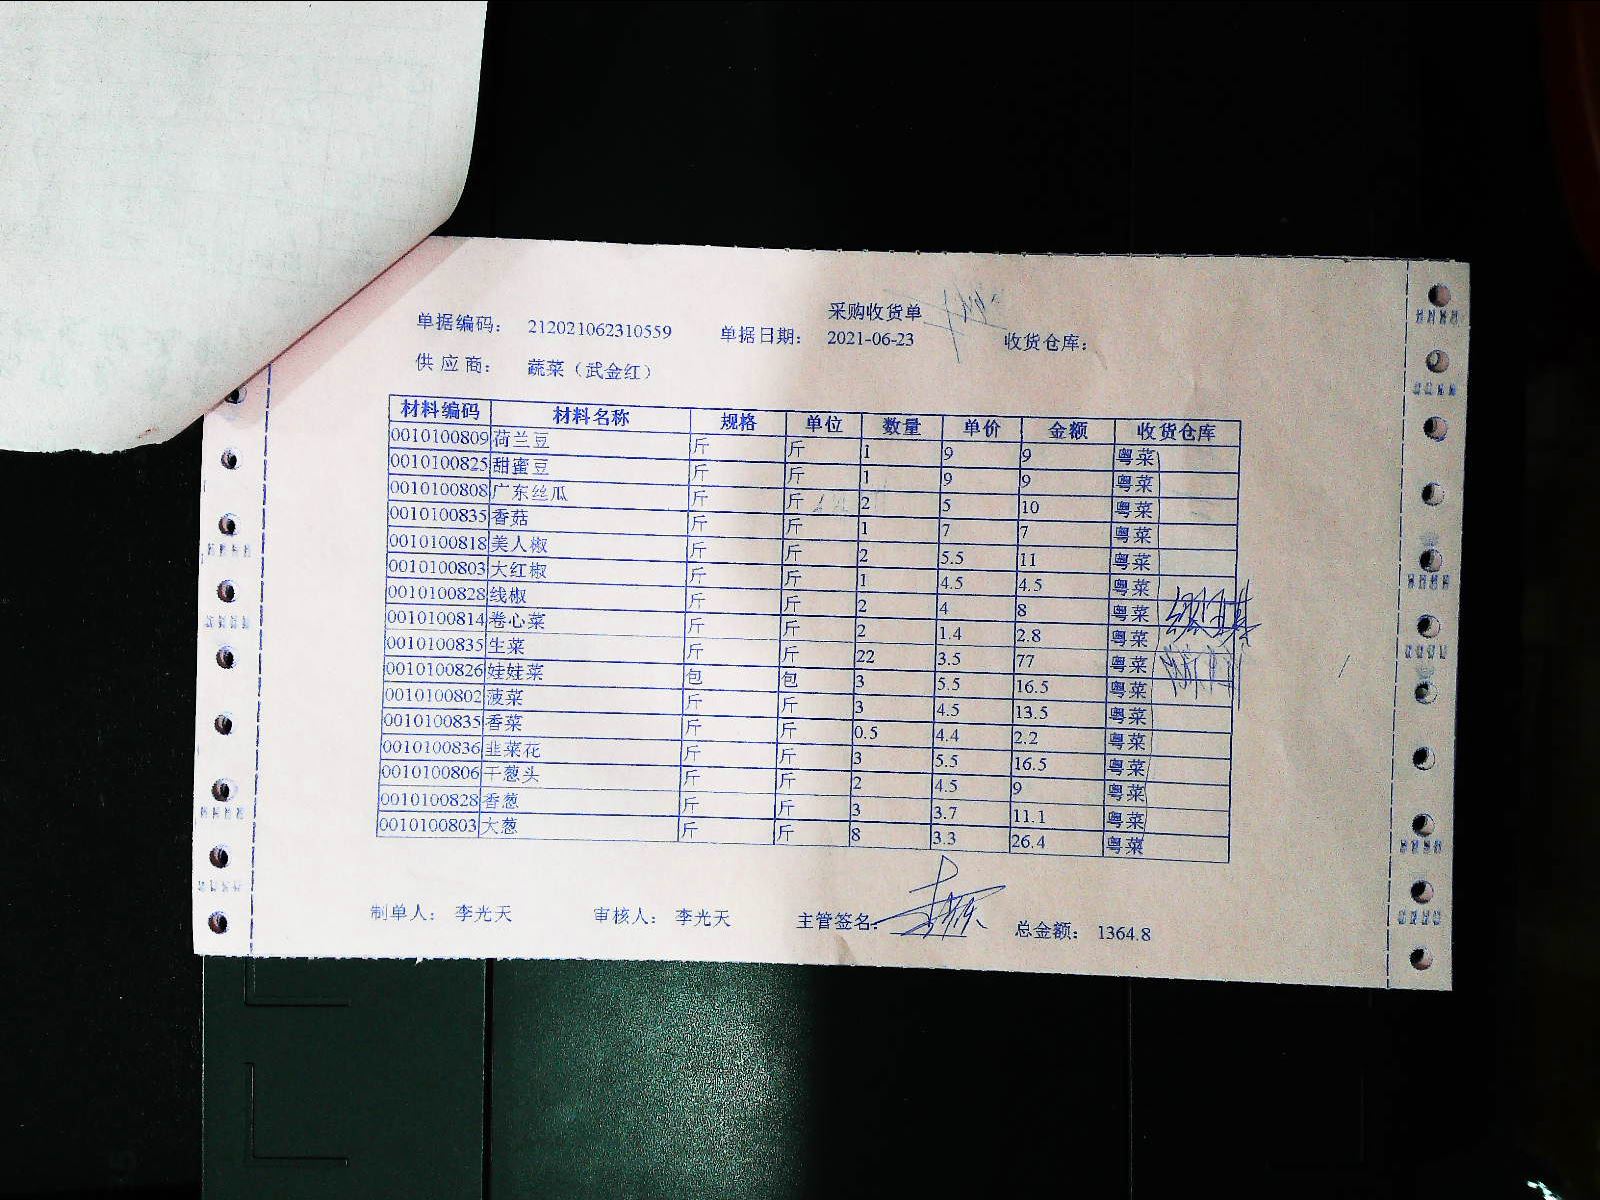 采购收货单
单据编码： 212021062310559 单据日期： 2021-06-23 收货仓库：
供 应 商： 蔬菜（武金红）
材料编码 材料名称 规格 单位 数量 单价 金额 收货仓库
0010100809 荷兰豆 斤 斤 1 9 9 粤菜
0010100825 甜蜜豆 斤 斤 1 9 9 粤菜
0010100808 广东丝瓜 斤 斤 2 5 10 粤菜
0010100835 香菇 斤 斤 1 7 7 粤菜
0010100818 美人椒 斤 斤 2 5.5 11 粤菜
0010100803 大红椒 斤 斤 1 4.5 4.5 粤菜
0010100828 线椒 斤 斤 2 4 8 粤菜
0010100814 卷心菜 斤 斤 2 1.4 2.8 粤菜
0010100835 生菜 斤 斤 22 3.5 77 粤菜
0010100826 娃娃菜 包 包 3 5.5 16.5 粤菜
0010100802 菠菜 斤 斤 3 4.5 13.5 粤菜
0010100835 香菜 斤 斤 0.5 4.4 2.2 粤菜
0010100836 韭菜花 斤 斤 3 5.5 16.5 粤菜
0010100806 干葱头 斤 斤 2 4.5 9 粤菜
0010100828 香葱 斤 斤 3 3.7 11.1 粤菜
0010100803 大葱 斤 斤 8 3.3 26.4 粤菜
制单人： 李光天 审核人： 李光天 主管签名： 总金额： 1364.8